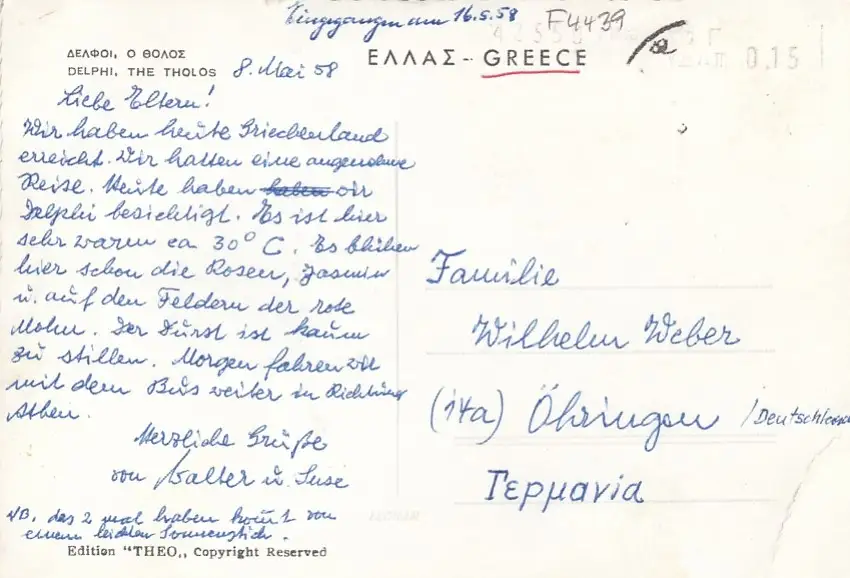 Eingegangen am 16.5.58
F4439
ΔΕΛΦΟΙ, Ο ΘΟΛΟΣ
DELPHI, THE THOLOS
8. Mai 58
ΕΛΛΑΣ - GREECE
0.15
Liebe Eltern!
Wir haben heute Griechenland
erreicht. Wir hatten eine angenehme
Reise. Heute haben wir
Delphi besichtigt. Es ist hier
sehr warm ca 30° C. Es blühen
hier schon die Rosen, Jasmin
u. auf den Feldern der rote
Mohn. Der Durst ist kaum
zu stillen. Morgen fahren wir
mit dem Bus weiter in Richtung
Athen.
Herzliche Grüße
von Walter u. Suse
NB. das 2 mal haben kommt von
einem leichten Sonnenstich.
Edition "THEO,, Copyright Reserved
Familie
Wilhelm Weber
(14a) Öhringen /Deutschland
Γερμανία